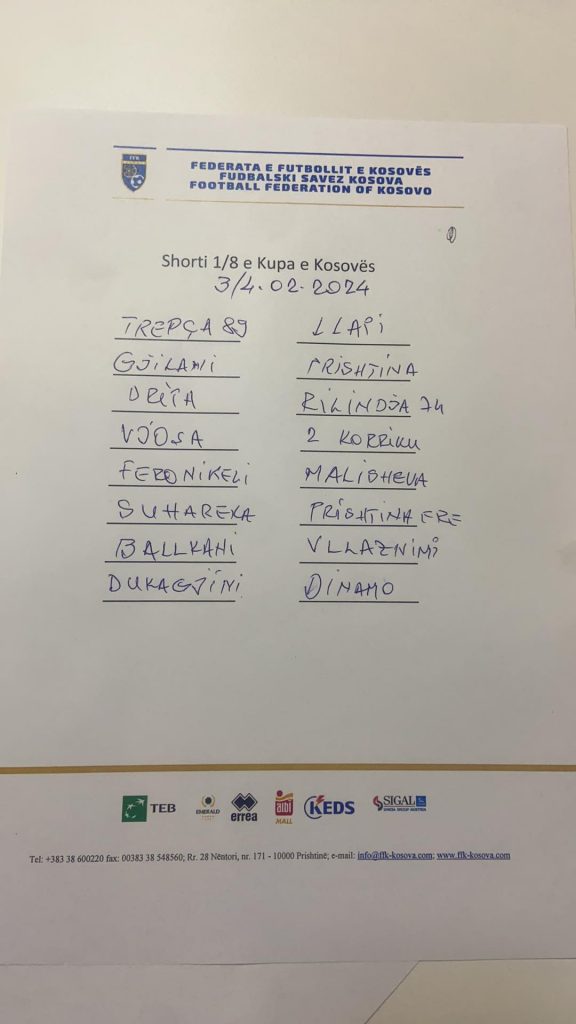 FFK
FEDERATA E FUTBOLLIT E KOSOVËS
FUDBALSKI SAVEZ KOSOVA
FOOTBALL FEDERATION OF KOSOVO
Shorti 1/8 e Kupa e Kosovës
3/4.02.2024
TREPÇA 89 LLAPI
GJILANI PRISHTINA
DRITA RILINDJA 74
VJOSA 2 KORRIKU
FERONIKELI MALISHEVA
SUHAREKA PRISHTINA ERE
BALLKANI VLLAZNIMI
DUKAGJINI DINAMO
TEB EMERALD errea albi MALL KEDS SIGAL
Tel: +383 38 600220 fax: 00383 38 548560; Rr. 28 Nëntori, nr. 171 - 10000 Prishtinë; e-mail: info@ffk-kosova.com; www.ffk-kosova.com